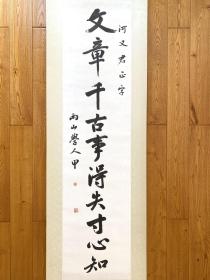 河又君正字
文章千古事得失寸心知
雨山学人甲